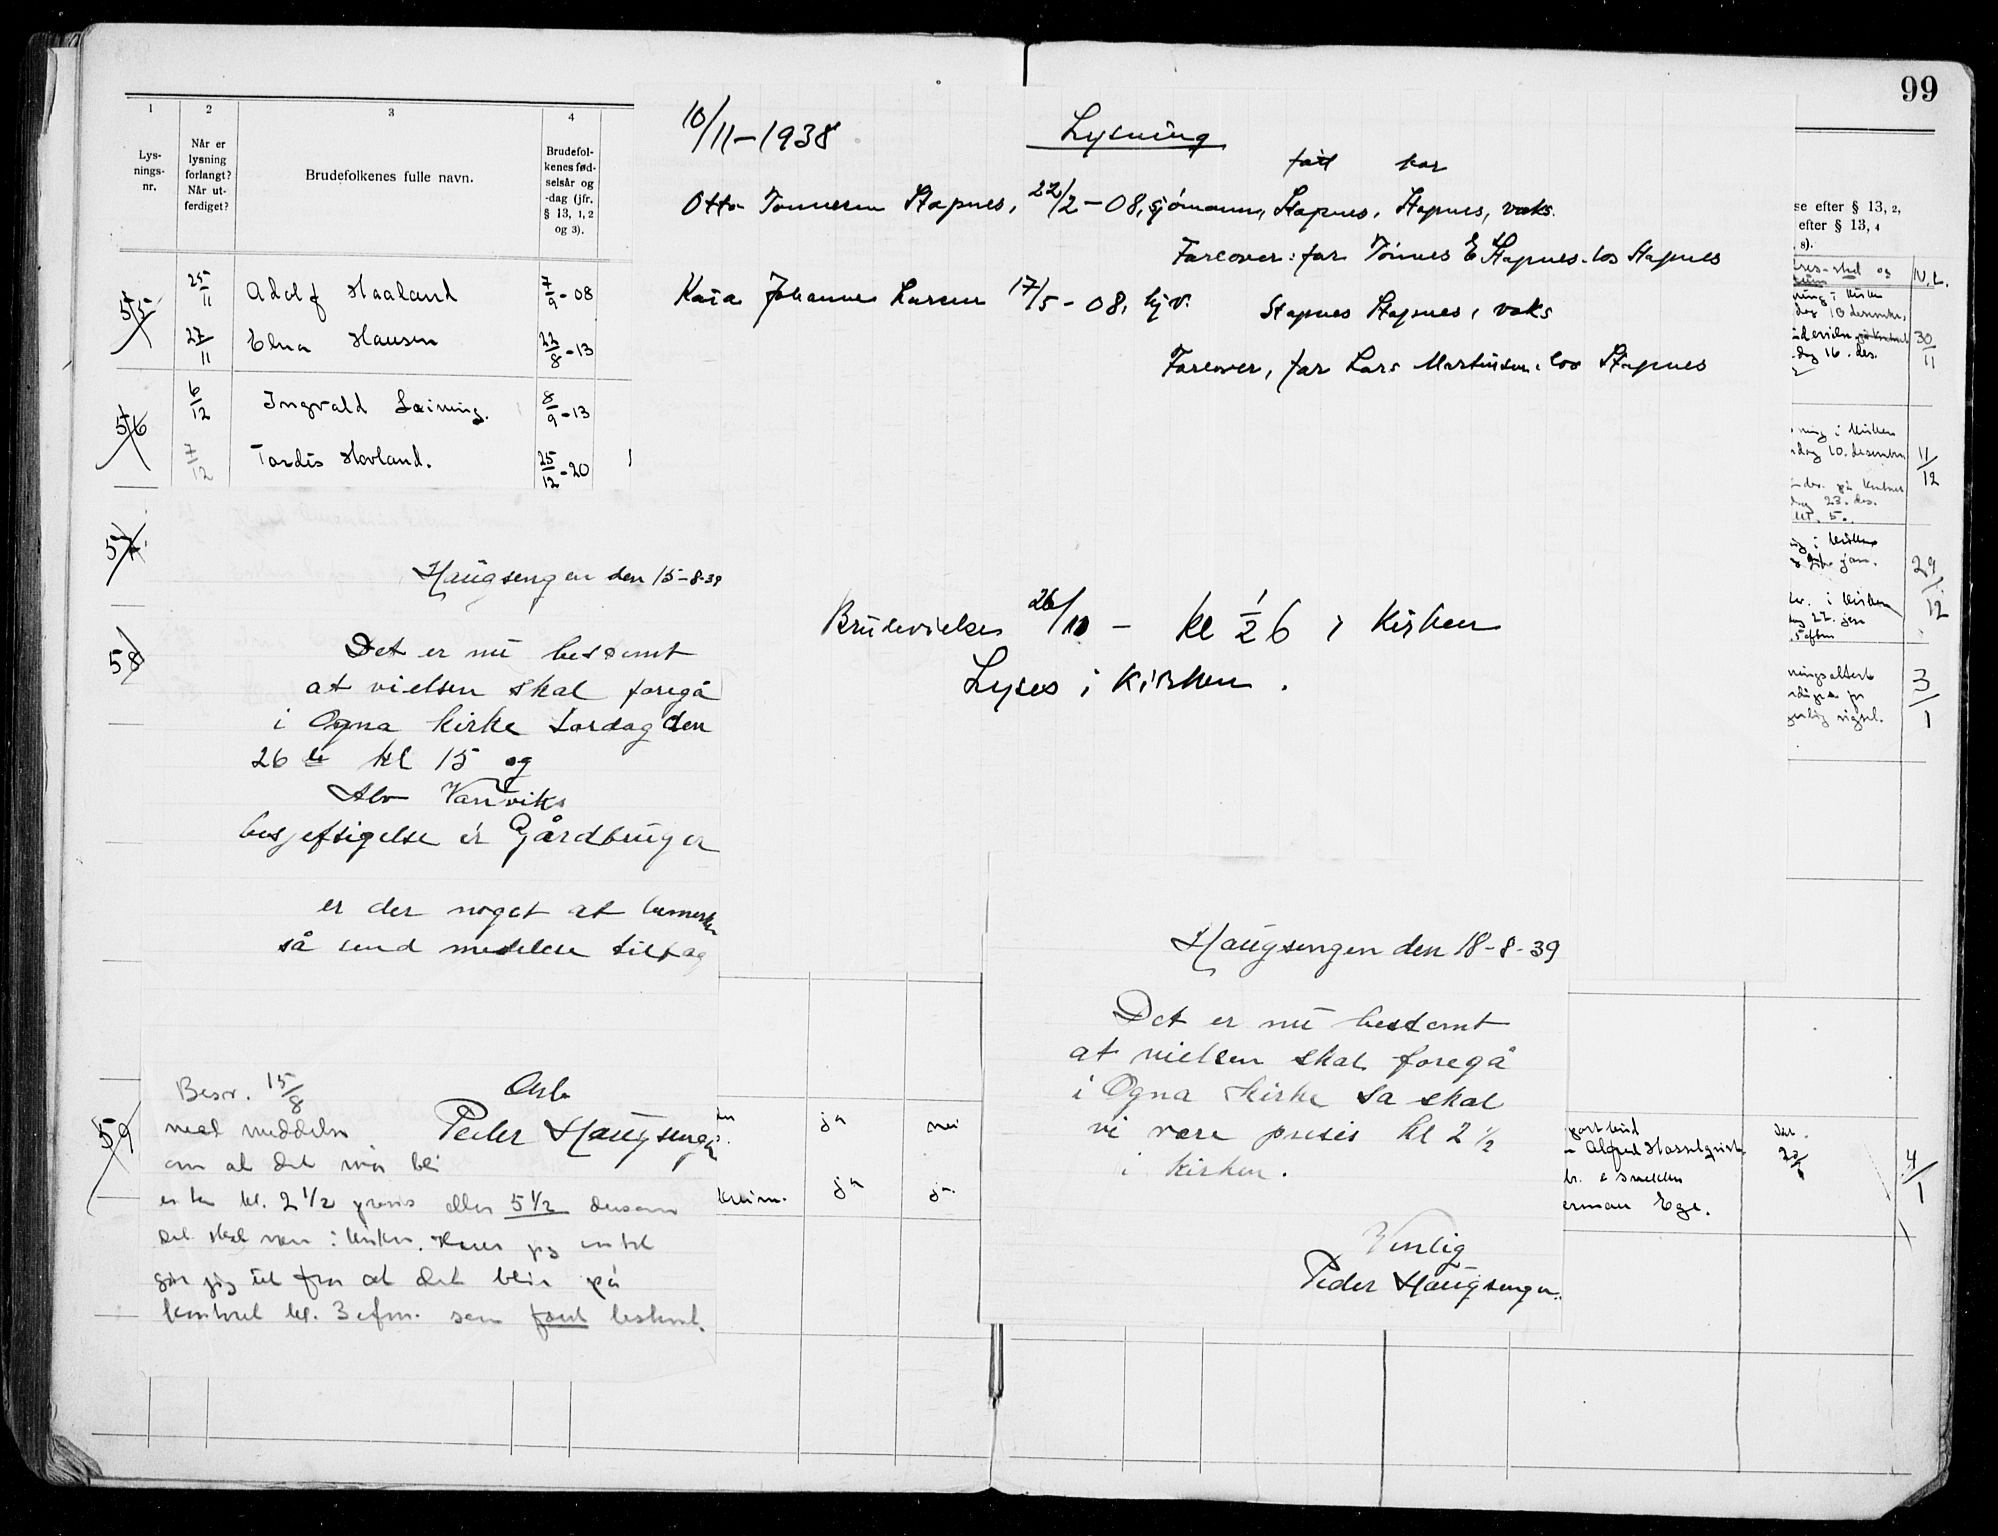 99
1
2
3
4
Lys-
nings-
nr.
Når er
lysning
forlangt?
Når ut-
ferdiget?
Brudefolkenes fulle navn.
Brudefol-
kenes fød-
selsår og
-dag (jfr.
§ 13, 1, 2
og 3).
55
25/11 Adolf Haaland 7/9-08
27/11 Elna Hansen 22/8-13
56
6/12 Ingvald Leining. 8/9-13
7/12 Tordis Hovland. 25/12-20
57
58
59
10/11-1938
Lysning
født har
Otto Tønnesen Stapnes, 22/2-08, sjømann, Stapnes, Stapnes, vaks.
Forlover: far Tønnes E Stapnes. los Stapnes
Kaia Johanne Larsen 17/5-08, hjv. Stapnes Stapnes, vaks
Forlover, far Lars Martinsen. los Stapnes
Brudevielse 26/11 - kl 1/2 6 i Kirken
Lyses i Kirken.
Haugsengen den 15-8-39
Det er nu bestemt
at vielsen skal foregå
i Ogna kirke Lørdag den
26 de kl 15 og
Alv Vanviks
besjeftigelse er Gårdbruger
er der noget at bemerke
så send medelse tilbag
Arb.
Peder Haugsengen
Besv. 15/8
med meddelse
om at det må bli
enten kl. 2 1/2 presis eller 5 1/2 dersom
det skal være i kirken. Hører jeg intet
går jeg ut fra at det blir på
kontoret kl. 3 efm. som først bestemt.
Haugsengen den 18-8-39
Det er nu bestemt
at vielsen skal foregå
i Ogna Kirke Sa skal
vi være presis kl 2 1/2
i kirken.
Venlig
Peder Haugsengen.
ja nei
ja ja
se efter § 13, 2,
efter § 13, 4
8).
N.L.
ning i kirken
dag 10 desember,
30/11
dag 16. des.
ning i kirken
dag 10. desember
11/12
på kontoret
dag 23. des.
kl. 5.
i kirken
jan.
29/12
i kirken
dag 22. jan
5 eftm
ningsattest
3/1
Alfred Hasselqvist
4/1
erman Ege.